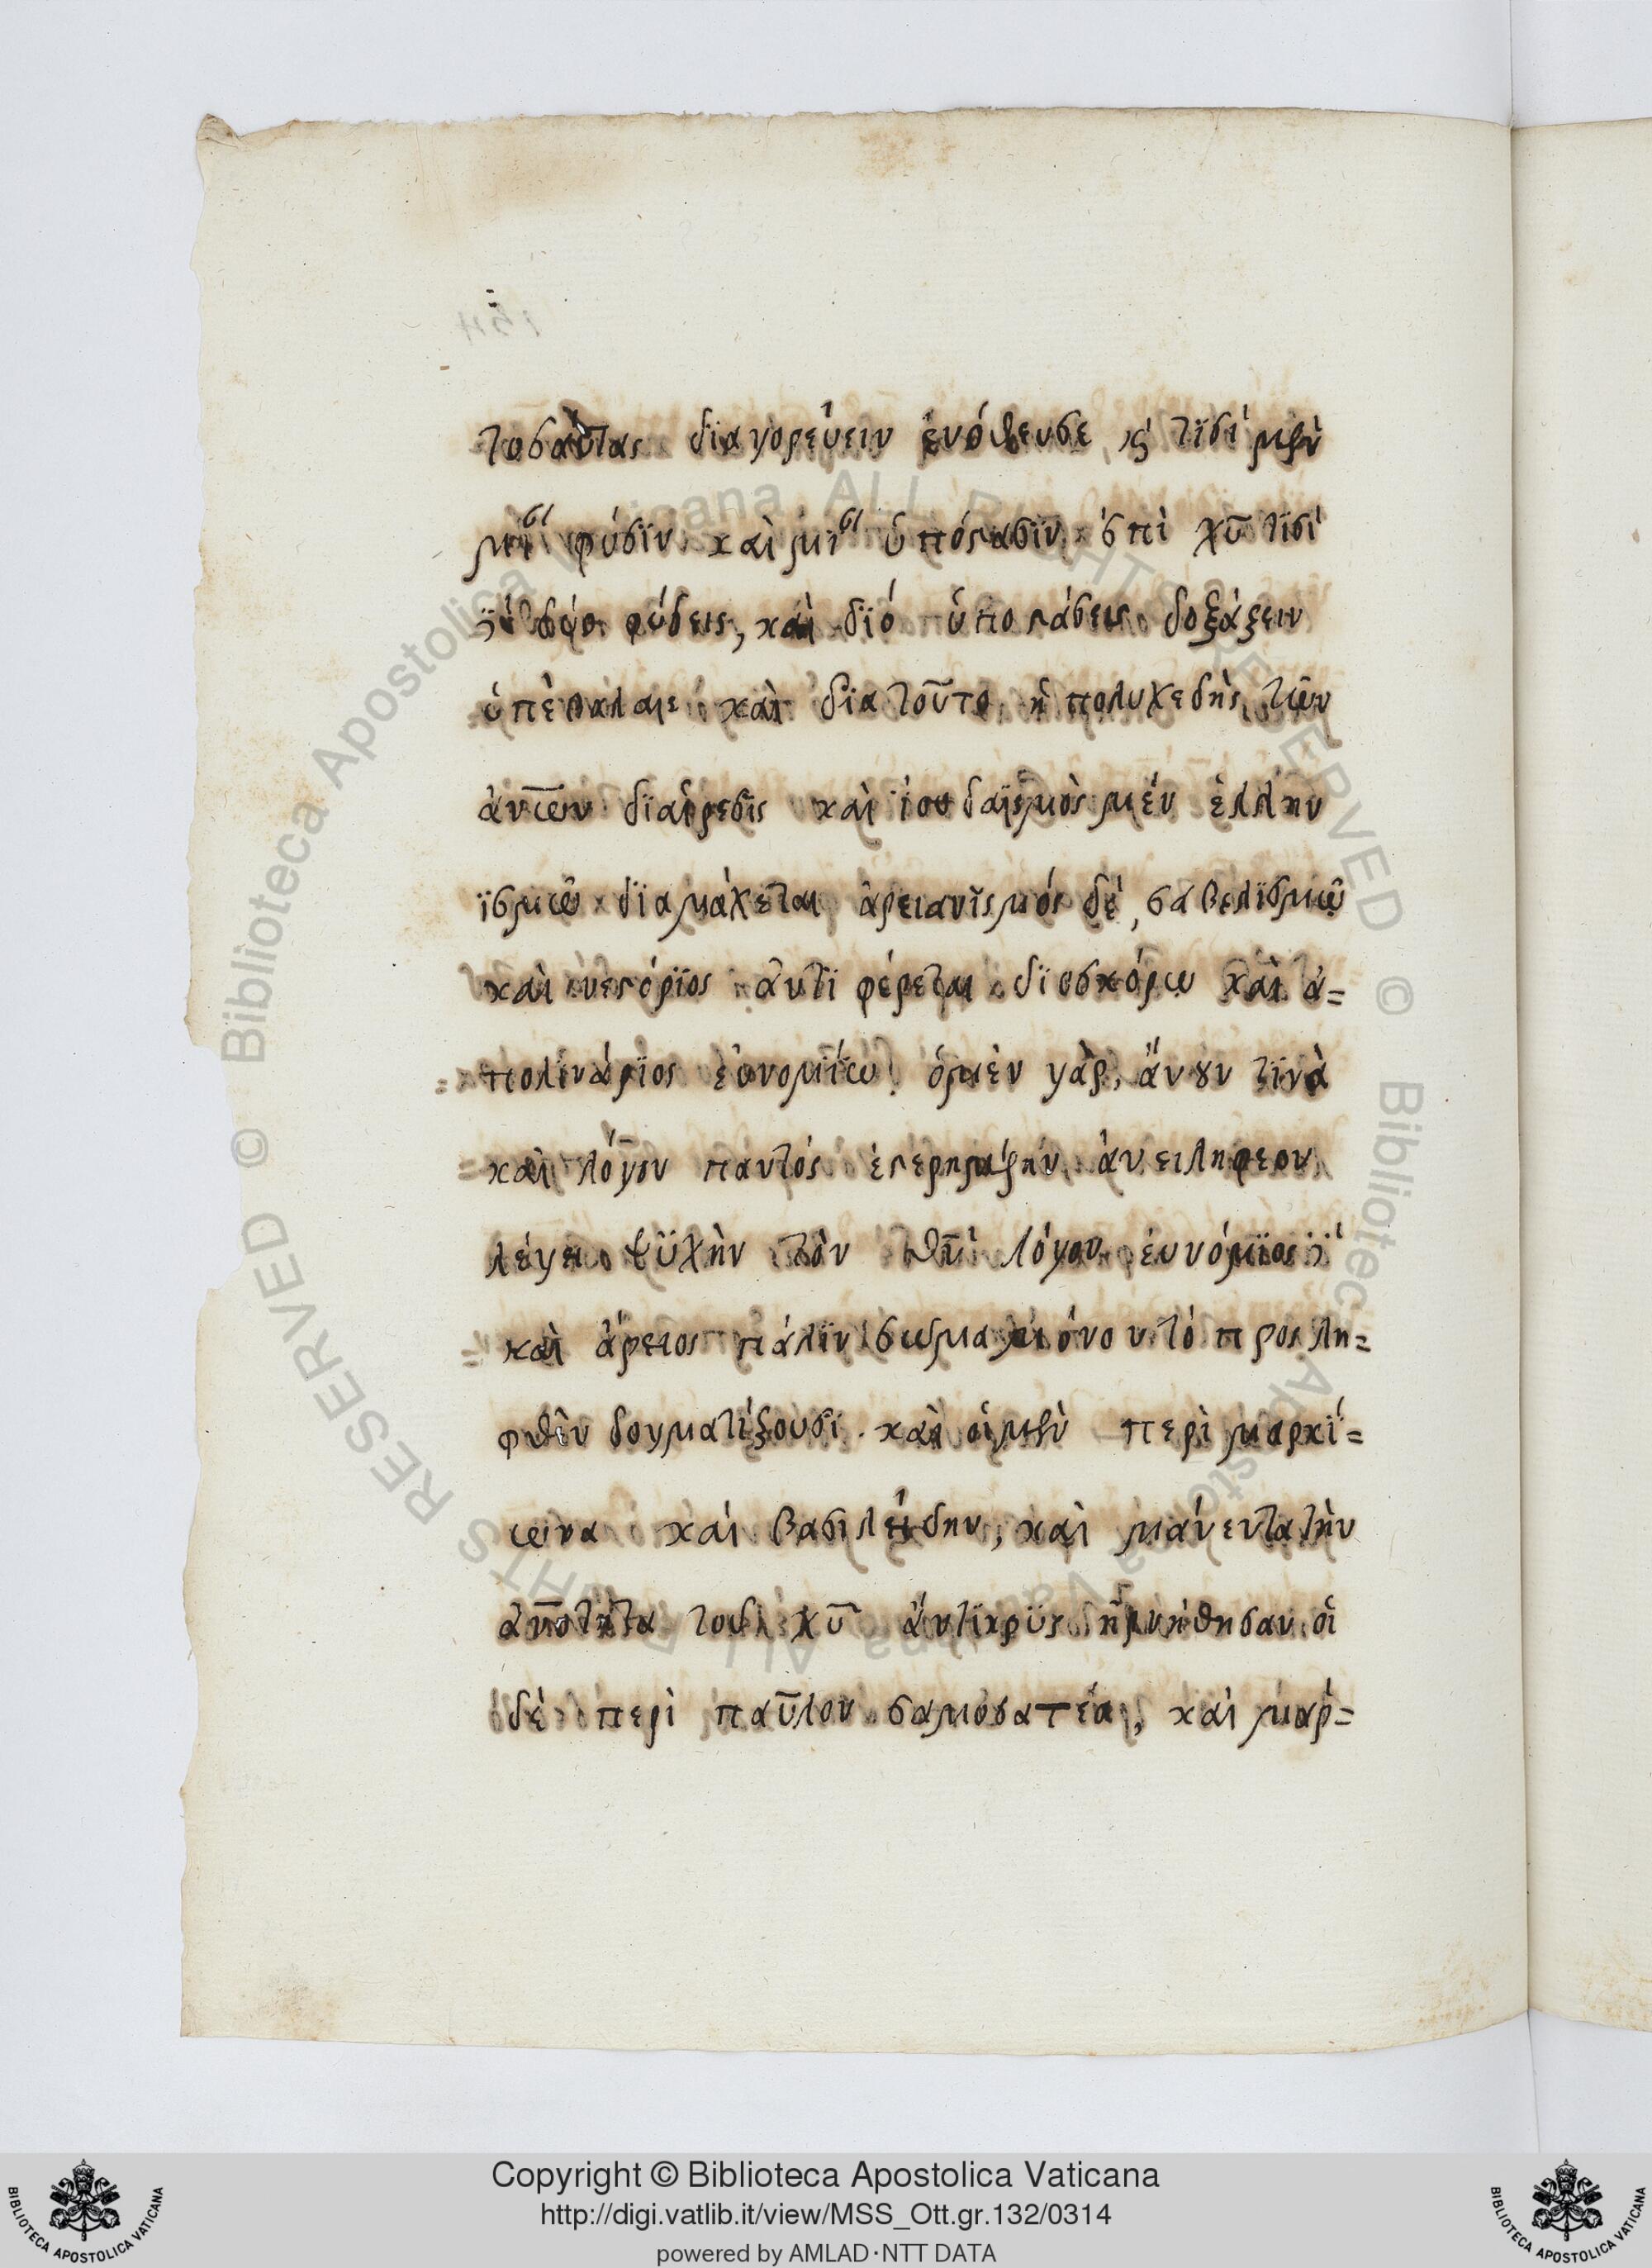 τοσαύτας διαγορεύειν ἐνόθευσε, κ τϊσί μὲν
φύσϊν καὶ ὑπόστασϊν ἐπὶ χῦ τϊσί
φύσεις, καὶ δϊό ὑποστάσεις δοξάζειν
ὑπέβαλαι καὶ δϊα τοῦτο ἡ πολυχεδὴς τῶν
ἀνων διαίρεσϊς καὶ ἰουδαϊσμὸς μέν ἑλλην
ϊσμῶ διαμάχεται ἀρειανϊσμός δέ, σαβελϊσμῶ
καὶ νεστόρϊος ἀντϊ φέρεται διοσκόρω καὶ ἀ=
πολϊνάρϊος εὐνομΐω. ὁμὲν γὰρ, ἄνουν τϊνὰ
καὶ λόγου παντός ἐστερημένην ἀνειληφεον
λέγει ψϋχὴν τὸν θῦ λόγον εὐνόμϊος
καὶ ἄρειος πάλϊν σωμα μόνον τό προσλη=
φθὲν δογματίζουσϊ. καὶ οἱμὲν περὶ μαρκί=
ωνα καὶ βασιλείδην, καὶ μάνεντα τὴν
ἀνοτητα τοῦ χῦ ἄντϊκρϋς ἠρνήθησαν οἱ
δὲ περὶ παῦλον σαμοσατέα, καὶ μαρ=
Copyright © Biblioteca Apostolica Vaticana
http://digi.vatlib.it/view/MSS_Ott.gr.132/0314
powered by AMLAD·NTT DATA
BIBLIOTECA APOSTOLICA VATICANA
BIBLIOTECA APOSTOLICA VATICANA